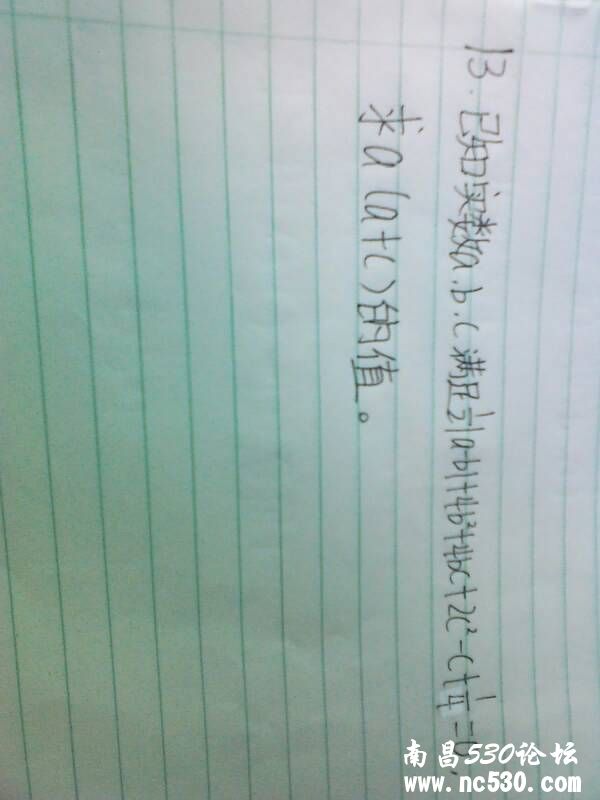 13. 已知实数a.b.c满足½|a-b|+4b²+4bc+2c²-c+¼=0,
求a(a+c)的值。
南昌530论坛
www.nc530.com